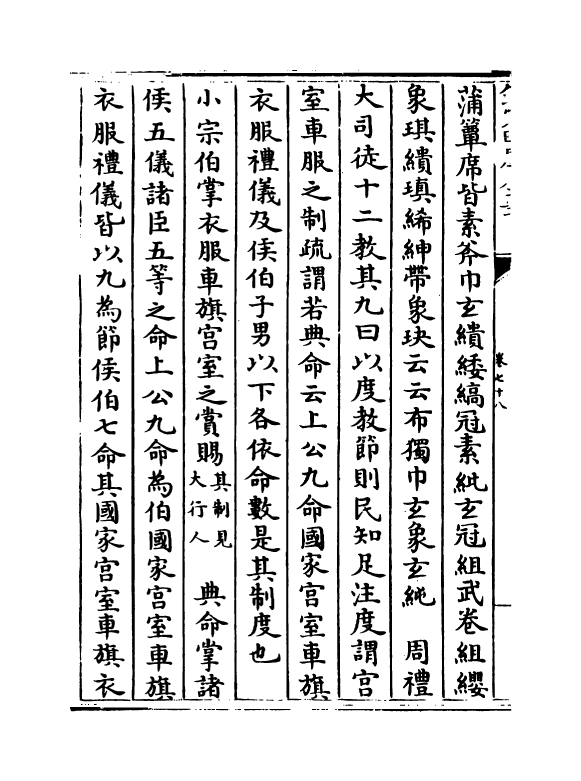 蒲簟席皆素斧巾玄繢緌縞冠素紕玄冠組武卷組纓
象琪繢瑱絺紳帶象玦云云布獨巾玄象玄純　周禮
大司徒十二教其九曰以度教節則民知足注度謂宫
室車服之制疏謂若典命云上公九命國家宫室車旗
衣服禮儀及侯伯子男以下各依命數是其制度也
小宗伯掌衣服車旗宫室之賞賜其制見大行人　典命掌諸
侯五儀諸臣五等之命上公九命為伯國家宫室車旗
衣服禮儀皆以九為節侯伯七命其國家宫室車旗衣
卷七十八